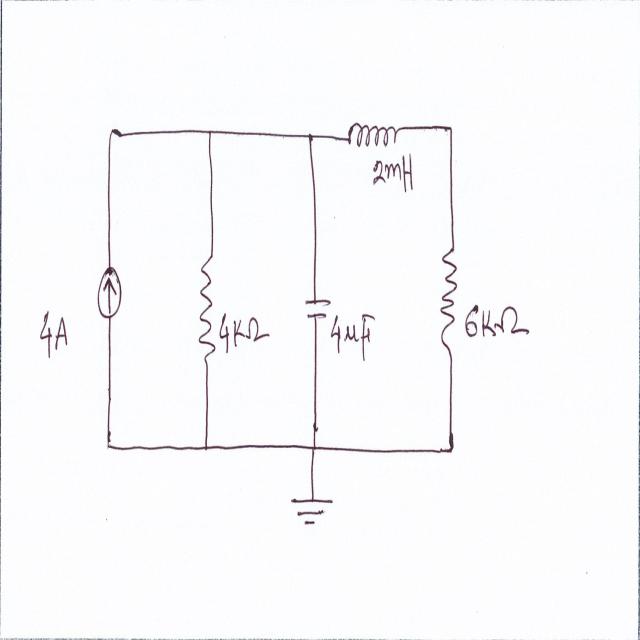 2mH
4A
4KΩ
4μF
6KΩ